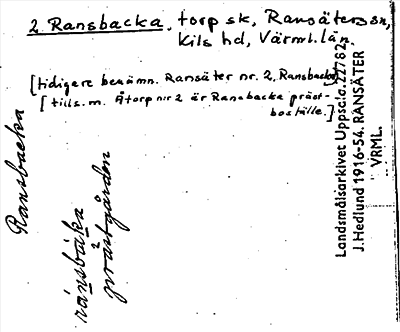 2. Ransbacka, torp sk, Ransäters sn,
Kils hd, Värml. län.
[tidigere benämn. Ransäter nr. 2, Ransbacka]
[tills. m. Åtorp nr 2 är Ransbacka präst-
boställe.]
Ransbacka
ránsbàka
prästgården
Landsmålsarkivet Uppsala 22782
J. Hedlund 1916-54. RANSÄTER
VRML.